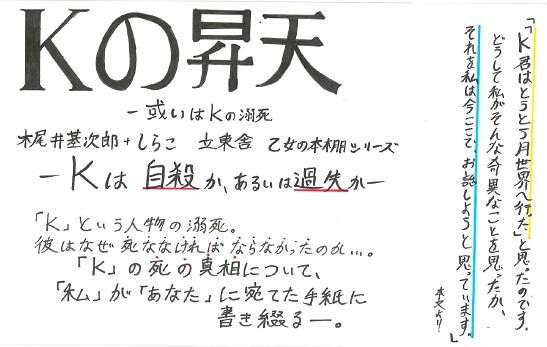 Kの昇天
ー或いはKの溺死
梶井基次郎+しらこ 立東舎 乙女の本棚シリーズ
ーKは自殺か、あるいは過失かー
「K」という人物の溺死。
彼はなぜ死ななければならなかったのか…。
「K」の死の真相について、
「私」が「あなた」に宛てた手紙に
書き綴るー。
「「K君はとうとう月世界へ行った」と思ったのです。
どうして私がそんな奇異なことを思ったか、
それを私は今ここで、お話しようと思っています。」
本文より